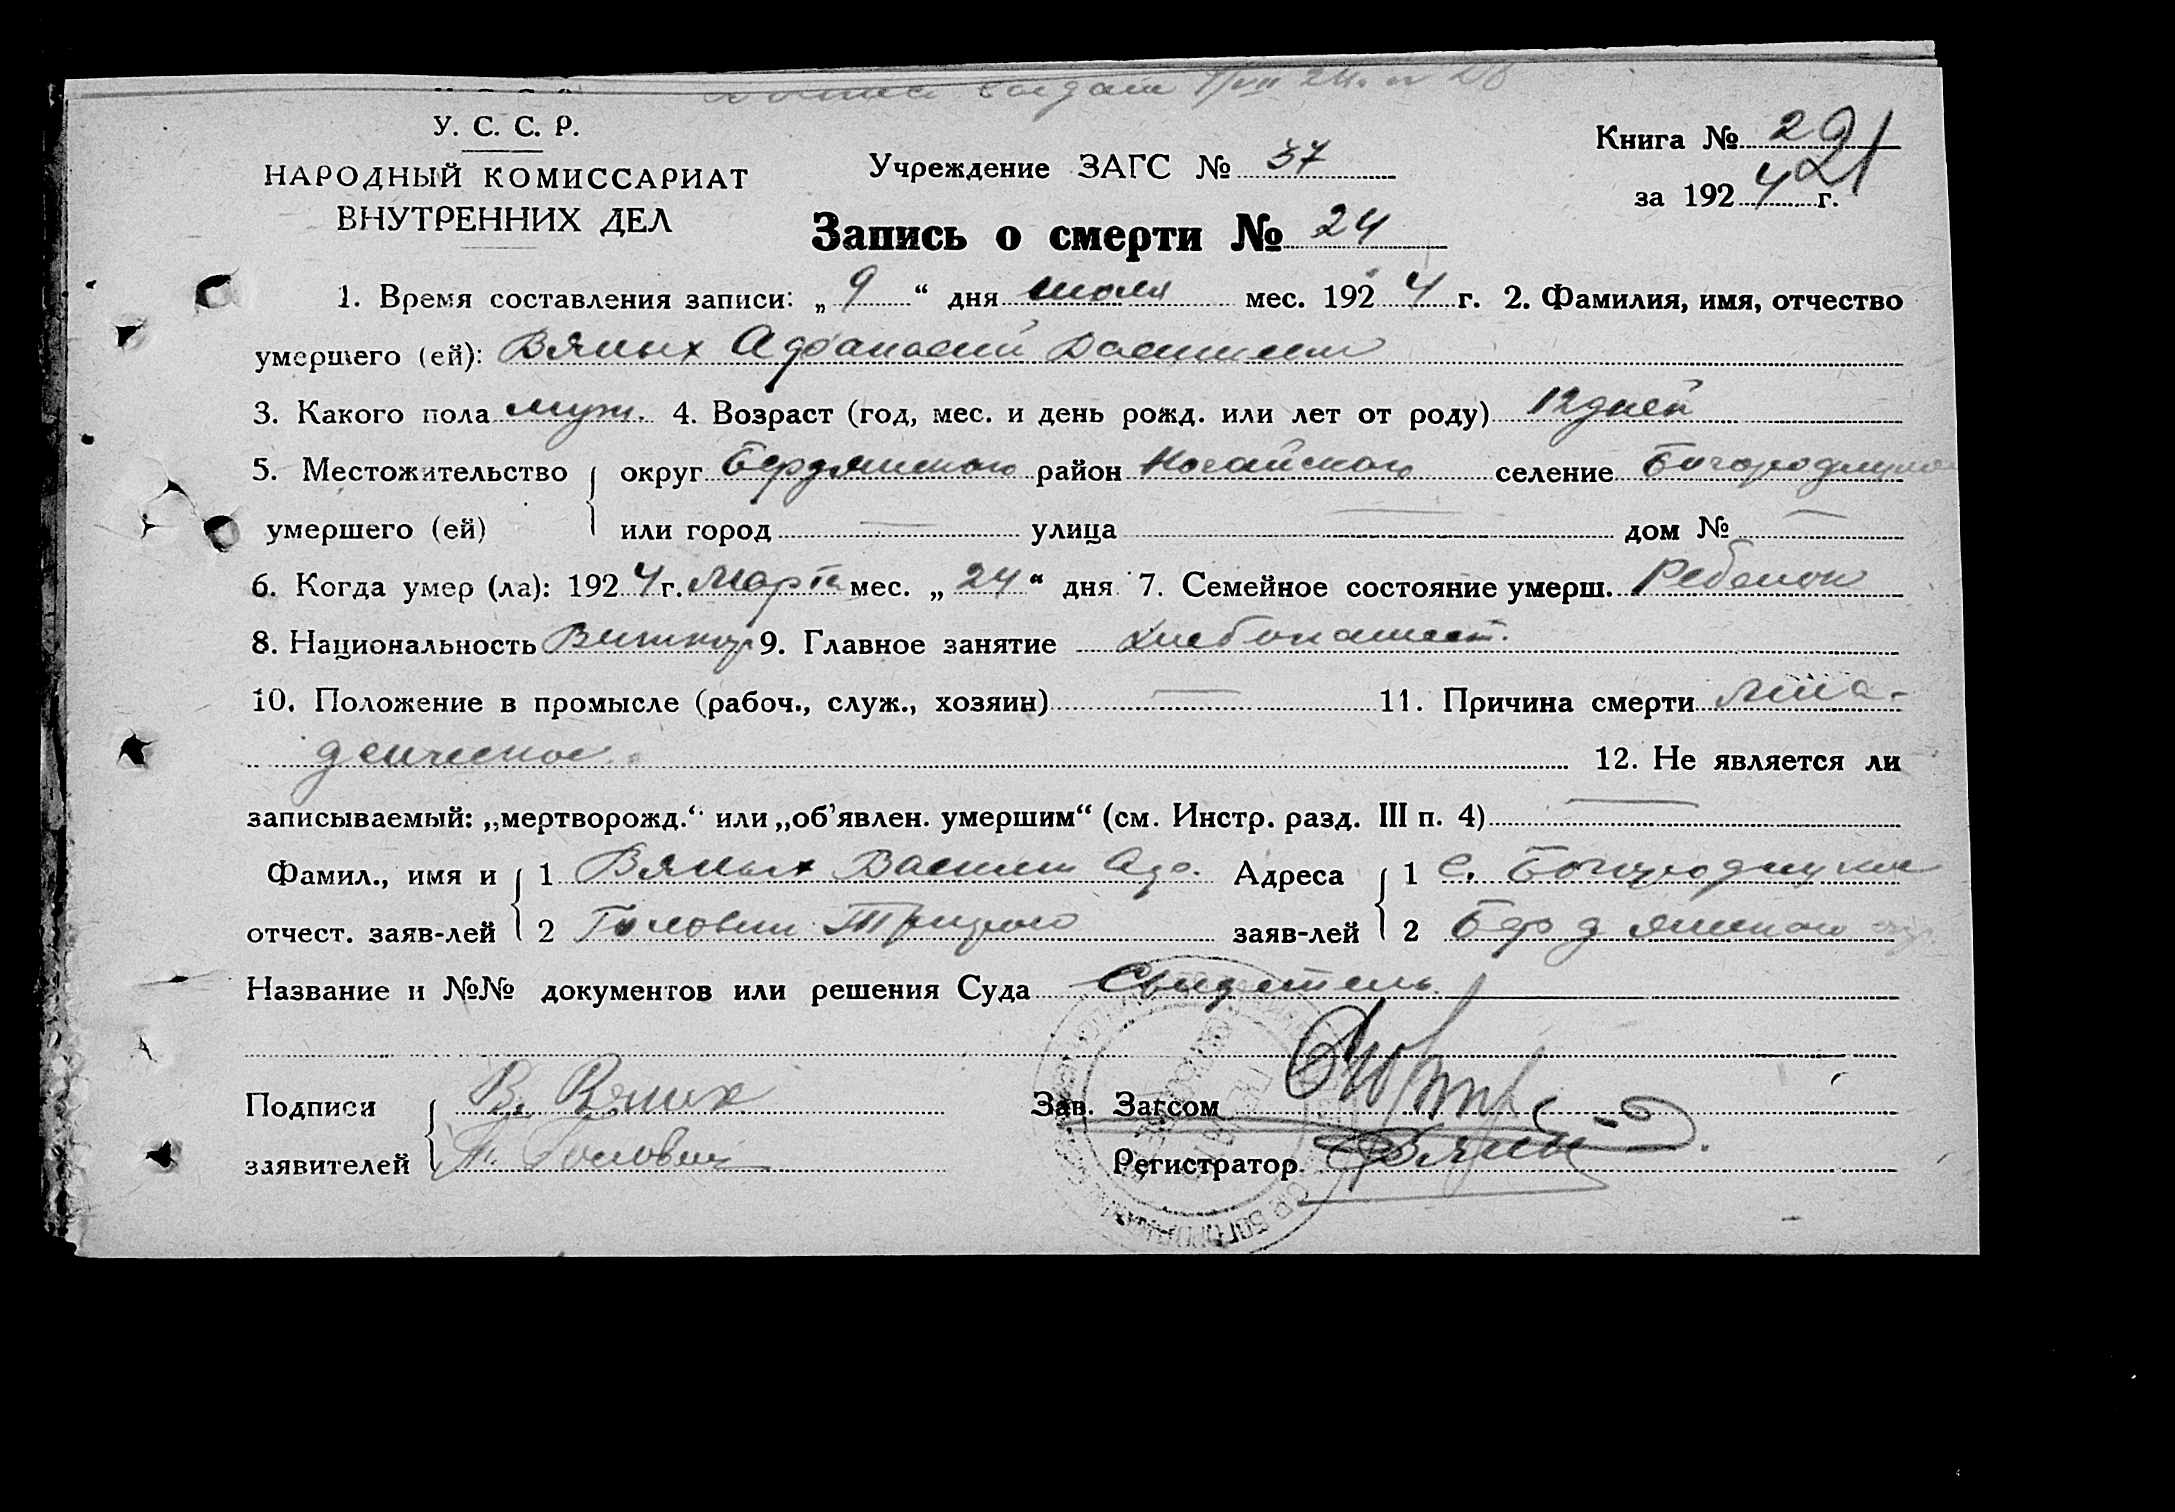 У. С. С. Р.
НАРОДНЫЙ КОМИССАРИАТ
ВНУТРЕННИХ ДЕЛ
Учреждение ЗАГС № 37
Книга № 2
21
за 1924 г.
Запись о смерти № 24
1. Время составления записи: „ 9 “ дня июля мес. 1924 г. 2. Фамилия, имя, отчество
умершего (ей): Вялых Афанасий
3. Какого пола муж. 4. Возраст (год, мес. и день рожд. или лет от роду) 12 дней
5. Местожительство { округ Бердянского район Ногайского селение
умершего (ей) или город — улица — дом № —
6. Когда умер (ла): 1924 г. Марта мес. „ 24 “ дня 7. Семейное состояние умерш. Ребенок
8. Национальность 9. Главное занятие хлебопашест.
10. Положение в промысле (рабоч., служ., хозяин) — 11. Причина смерти Мла-
денческое
12. Не является ли
записываемый: „мертворожд.“ или „об’явлен. умершим“ (см. Инстр. разд. III п. 4) —
Фамил., имя и { 1 Вялых Василий Аф. Адреса { 1 С.
отчест. заяв-лей 2 Головин заяв-лей 2 Бердянского
Название и №№ документов или решения Суда Свидетель
Подписи { В. Вялих Зав. Загсом
заявителей Т. Головин Регистратор